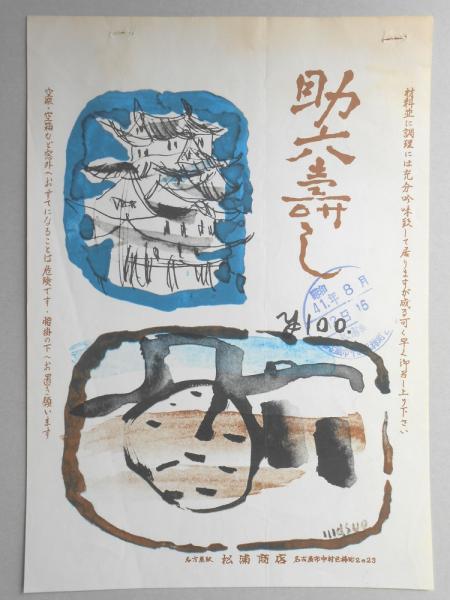 材料並に調理には充分吟味致して居りますが成る可く早く御召し上り下さい
助六壽し
昭和
41.年8月
¥100.
空瓶・空箱など窓外へおすてになることは危険です・腰掛の下へお置き願います
名古屋駅 松浦商店 名古屋市中村区椿町2の23